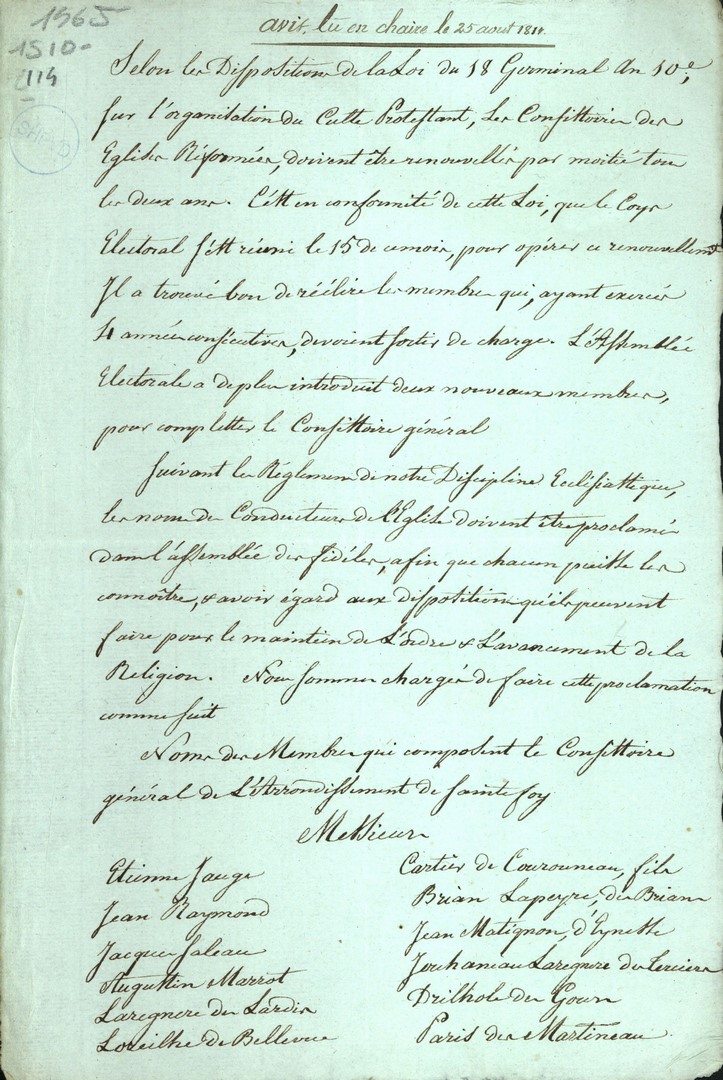 1565
1510-
114
avis, lu en chaire le 25 aout 1811.
Selon les Dispositions de la Loi du 18 Germinal An 10e,
sur l'organisation du Culte Protestant, Les Consistoires des
Eglises Réformées, doivent être renouvellés par moitié tous
les deux ans. C'est en conformité de cette Loi, que le Corps
Electoral s'est réuni le 15 de ce mois, pour opérer ce renouvellemt
Il a trouvé bon de réélire les membres qui, ayant exercés
4 années consécutives, devoient sortir de charge. L'Assemblée
Electorale a de plus introduit deux nouveaux membres,
pour completter le Consistoire général
Suivant les Réglemens de notre Discipline Ecclésiastique,
les noms des Conducteurs de l'Eglise doivent être proclamés
dans l'assemblée des fidéles, afin que chacun puisse les
connoître, & avoir égard aux dispositions qu'ils peuvent
faire pour le maintien de L'ordre & L'avancement de la
Religion. Nous sommes chargés de faire cette proclamation
comme suit
Noms des Membres qui composent le Consistoire
général de L'Arrondissement de Sainte foy
Messieurs
Etienne Jauge
Jean Raymond
Jacques Saleau
Augustin Marrot
Laregnere des Lardis
Loreilhe de Bellevue
Cartier de Courouneau, fils
Brian Lapeyre, des Brians
Jean Matignon, d'Eynesse
Jouhaneau Laregnere des Terciers
Drilhole des Gours
Paris des Martineau